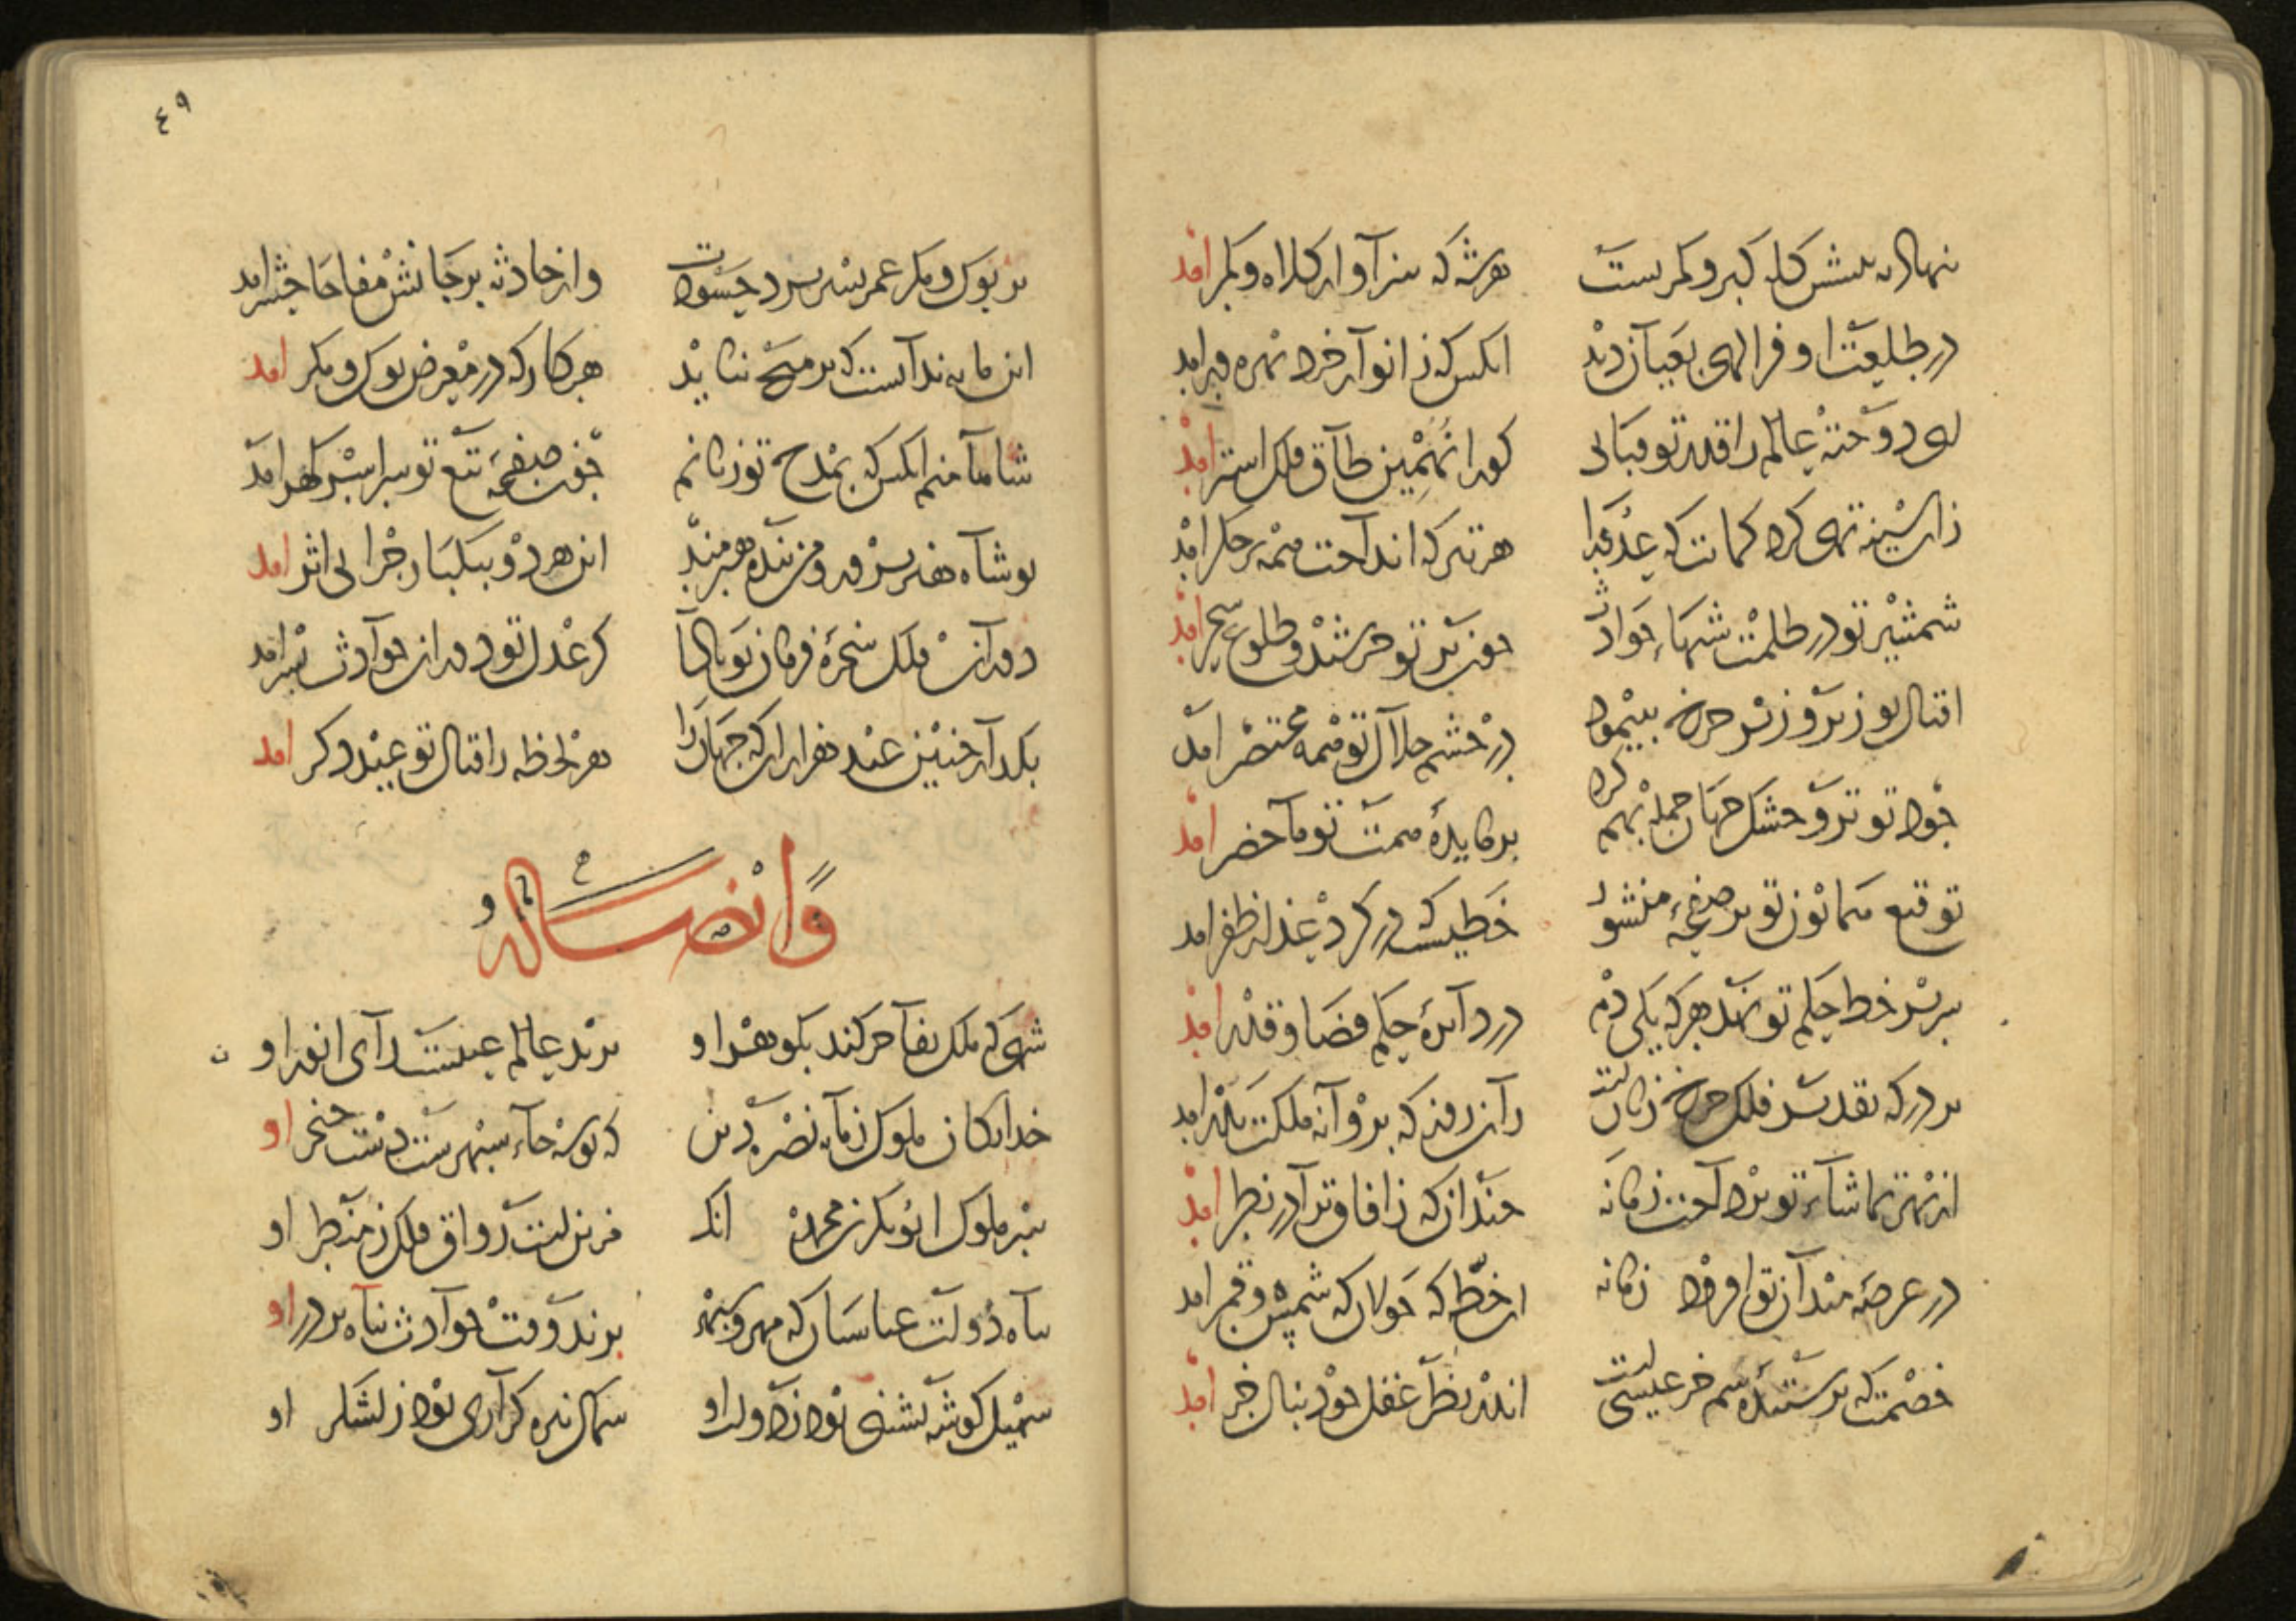 بنهاد به پیشش کله کبر و کمر بست هر شه که سزاوار کلاه و کمر امذ
در طلعت او فر الهی بعیان دید انکس که ز انوار خرد بهره ور امد
ای دوخته عالم را قدر تو قبائی کورا نهمین طاق فلک استر امذ
زان سینه تهی کرد کمانت که عدو را هر تیر که انداخت همه بر جکر امذ
شمشیر تو در ظلمت شبهاء حوادث چون تیر تو خرشید و طلوع سحر امذ
اقبال تو زیر و زبر چرخ بپیمود در چشم جلال تو همه مختصر امد
جود تو تر و خشک جهان جمله بهم کرد بر مایدهٔ همتت تو ماحضر امذ
توقیع همایون تو بر صفحهٔ منشور خطیست که در کرد عذار ظفر امد
بر سر خط حکم تو نهد هر که یکی دم در دایرهٔ حکم قضا و قدر امذ
بر درکه قدر فلک چرخ زنانست زان روز که پروانه ملکت بدر امد
از بهر تماشاء تو برداخت زمانه چندان که ز افاق ترا در نظر امذ
در عرصهٔ میدان تو افزود زمانه ان خط که جولانکه شمس و قمر امد
خصمت که پرستندهٔ سم خر عیسیست اندر نظر عقل چو دنبال خر امذ
بر بوک و مکر عمر بسر برد حسودت واز حادثه بر جانش مفاجا حشر امد
این مایه نداست که بر هیچ نپاید هر کار که در معرض بوک و مکر امد
شاها منم انکس که بمدح تو زبانم چون صفحهٔ تیغ تو سراسر کهر امد
تو شاه هنر پرور و من بنده هنرمند این هر دو بیکبار چرا بی اثر امد
دوران فلک سخرهٔ فرمان تو بادا کز عدل تو دوران حوادث بسر امد
بکذار چنین عید هزاران که جهان را هر لحظه ز اقبال تو عیدی دکر امد
وایضا له
شهی که ملک تفاخر کند بکوهر او برید عالم غیبست رای انور او
خدایکان ملوک زمانه نصرة دین که بوسه جاء سپهرست دست و خنجر او
سر ملوک ابو بکر بن محمد انک فروترست رواق فلک ز منظر او
پناه دولت عباسیان که مهر و سپهر برند وقت حوادث پناه بر در او
سهیل کوشه نشینی بود ز داولت او سماک نیزه کزاری بود ز لشکر او
٤٩